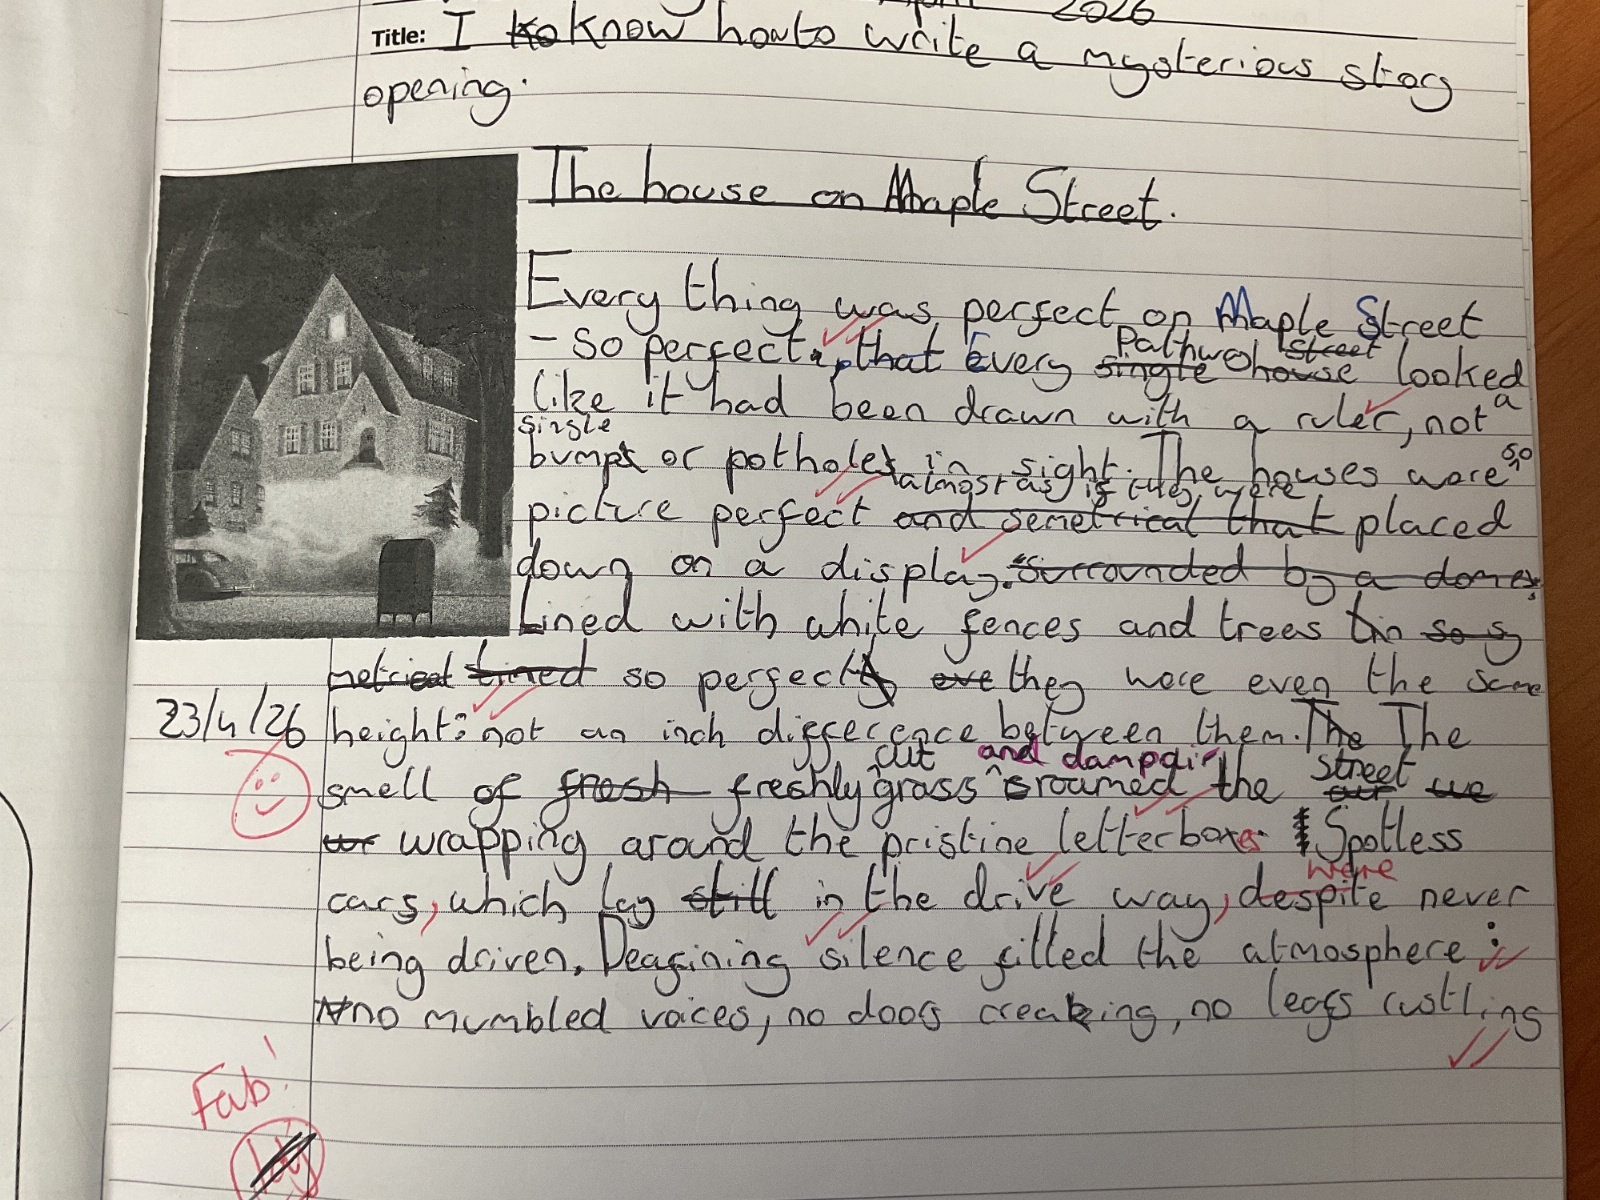 2026
Title: I ko know how to write a mysterious story
opening.
The house on Maple Street.
Every thing was perfect on Maple Street
Pathway street
- So perfect, that Every single house looked
like it had been drawn with a ruler, not a
single
bumps or potholes in sight. The houses were so
almost as if they were
picture perfect and semetrical that placed
down on a display. Surrounded by a dome,
Lined with white fences and trees in so sy
metrical lined so perfectly eve they were even the same
23/4/26 height: not an inch difference between them. The The
cut and damp air street
smell of fresh freshly grass roamed the our we
wrapping around the pristine letterboxes. Spotless
were
cars, which lay still in the drive way, despite never
being driven. Deafining silence filled the atmosphere:
no mumbled voices, no doors creaking, no leafs rustling
Fab!